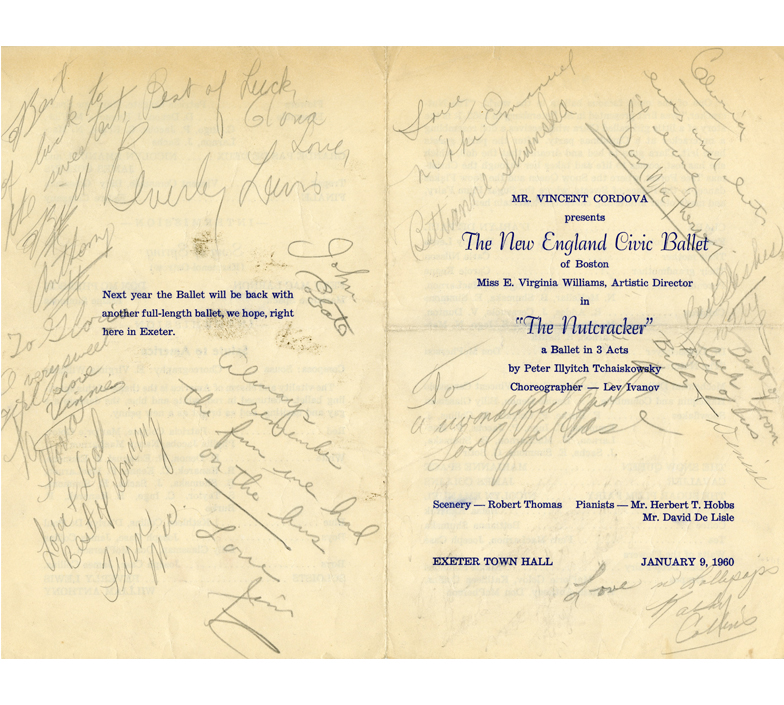 Best
of luck to
the sweetest,
Bill
Anthony
Best of Luck,
Gloria
Love,
Beverly Lewis
John
Next year the Ballet will be back with
another full-length ballet, we hope, right
here in Exeter.
To Gloria
A very sweet
girl Love
Vinnie
Gloria
Love & Luck
Best of Dancing
Fern
Always
remember
the fun we had
on the bus
Love
Jim
Love,
Nikki Emanuel
Gloria
MR. VINCENT CORDOVA
presents
The New England Civic Ballet
of Boston
Miss E. Virginia Williams, Artistic Director
in
"The Nutcracker"
a Ballet in 3 Acts
by Peter Illyitch Tchaiskowsky
Choreographer — Lev Ivanov
Best of
luck from
Denise
Billy
To
a wonderful girl
Love
Scenery — Robert Thomas Pianists — Mr. Herbert T. Hobbs
Mr. David De Lisle
EXETER TOWN HALL JANUARY 9, 1960
Love n Lollipops
Kathy
Collins